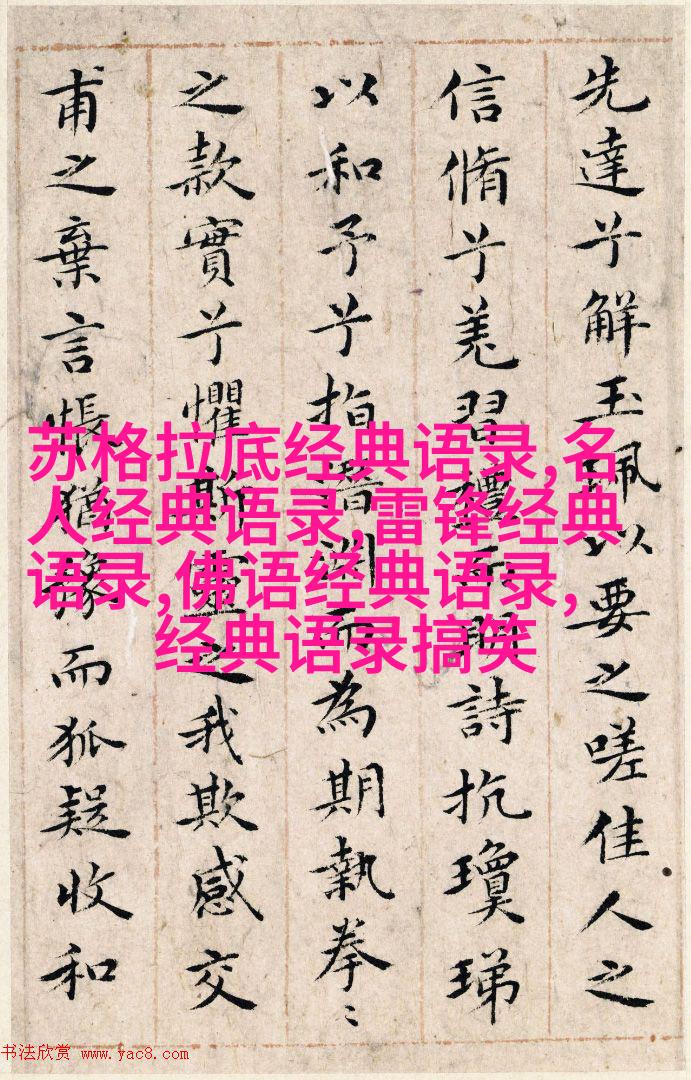 先達兮解玉珮以要之嗟佳人之
信脩兮羌習禮而明詩抗瓊珶
以和予兮指潛淵而為期執拳〻
之款實兮懼斯靈之我欺感交
甫之棄言悵猶豫而狐疑收和
苏格拉底经典语录,名
人经典语录,雷锋经典
语录,佛语经典语录,
经典语录搞笑
书法欣赏 www.yac8.com